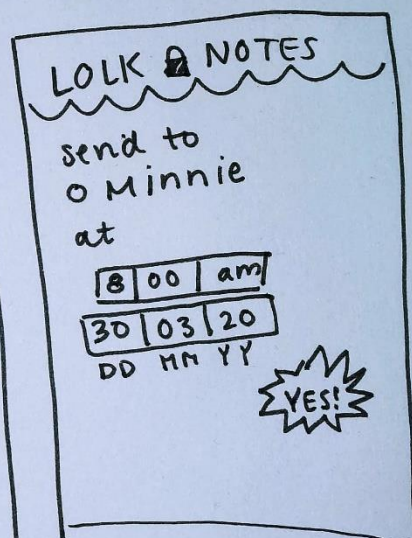 LOLK NOTES
send to
o Minnie
at
8 00 am
30 03 20
DD MM YY
YES!